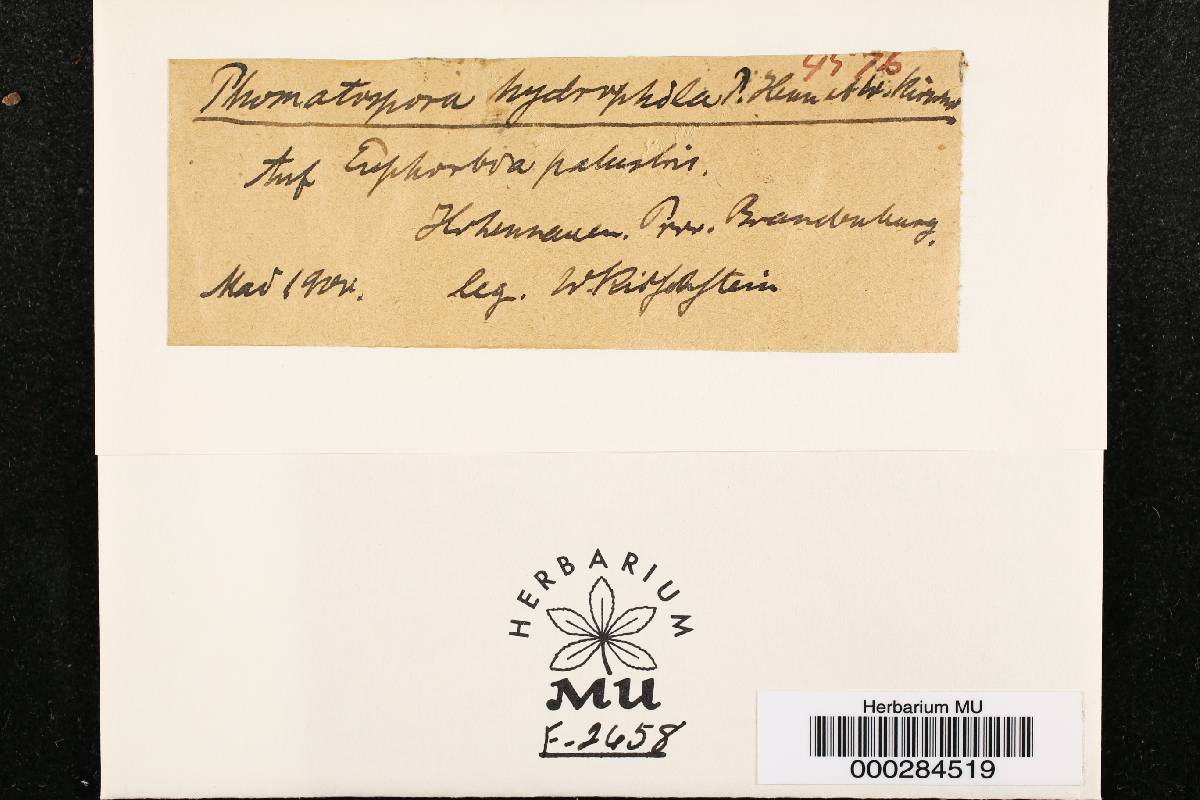 45 76
Phomatospora hydrophila P. Henn et W. Kirschst
Auf Euphorbia palustris.
Hohennauen. Prov. Brandenburg.
Mai leg. W Kirschstein
HERBARIUM
MU
F-2658
Herbarium MU
000284519